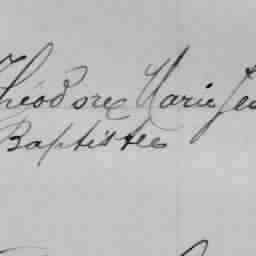 Théodore Marie Jea
Baptiste